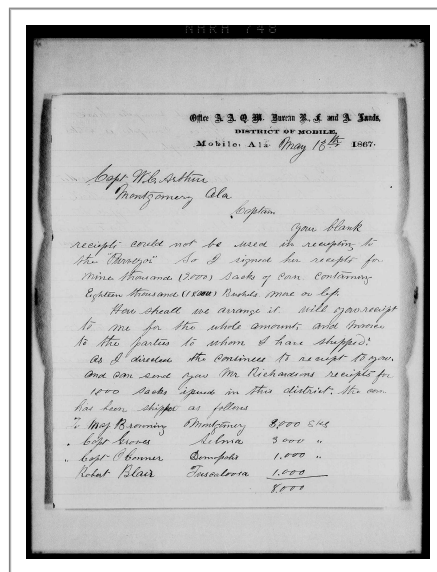 Office A. A. Q. M. Bureau R., F. and A. Lands,
DISTRICT OF MOBILE,
Mobile, Ala May 13th 1867.
Capt W.C. Arthur
Montgomery Ala
Captain
Your blank
receipts could not be used in receipting to
the "Purveyor" So I signed his receipts for
nine thousand (9000) sacks of corn containing
Eighteen thousand (18000) Bushels more or less.
How shall we arrange it. will you receipt
to me for the whole amount, and Invoice
to the parties to whom I have shipped.
as I directed the consinees to receipt to you.
and can send you Mr Richardsons receipts for
1000 sacks issued in this district. the corn
has been shipped as follows
To Maj Browning Montgomery 3,000 Sks
" Capt Groves Selma 3000 "
" Capt O'Conner Demopolis 1.000 "
Robert Blair Tuscaloosa 1.000
8.000